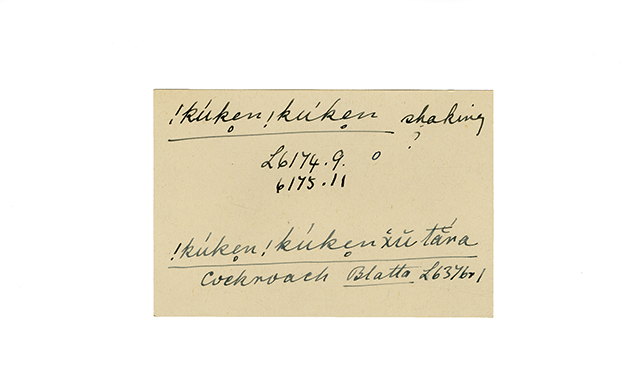 !kúken̥!kúken̥ shaking
?
L6174.9. o
6175.11
!kúken̥!kúken̥ x̆ŭ tắra
Cockroach Blatta L6376r1